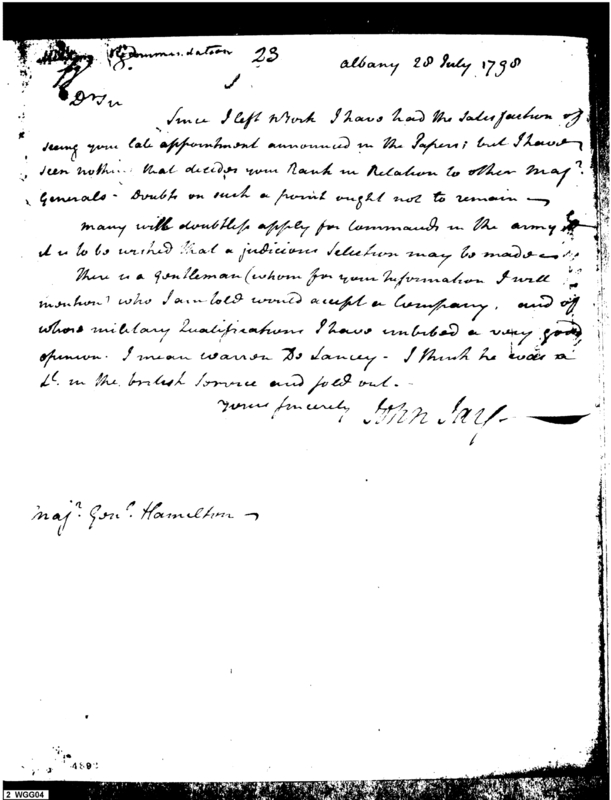 Recommendation 23 Albany 28 July 1798
Dr Sir
Since I left NYork I have had the Satisfaction of
seeing your late appointment announced in the Papers; but I have
seen nothing that decides your Rank in Relation to other Majr.
Generals - Doubts on such a point ought not to remain —
many will doubtless apply for Commands in the army
it is to be wished that a judicious Selection may be made —
There is a Gentleman (whom for your Information I will
mention) who I am told would accept a Company, and of
whose military Qualifications I have imbibed a very good
opinion. I mean Warren De Lancey - I think he was a
Lt. in the british Service and sold out. -
Yours sincerely John Jay
Majr. Genl. Hamilton —
489
2 WGG04